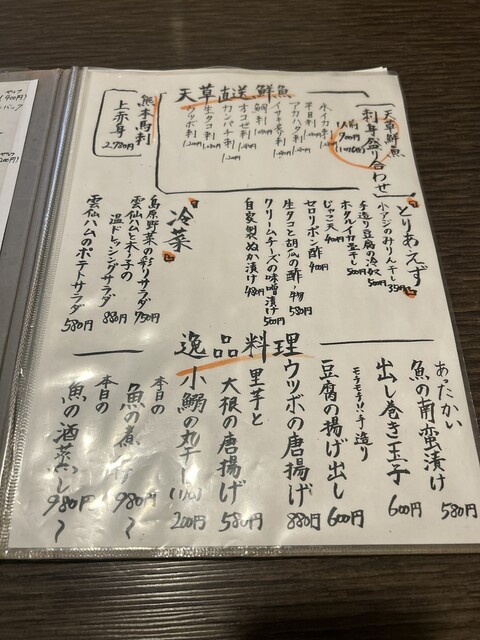 天草直送鮮魚
天草鮮魚
刺身盛り合わせ
1人前
900円
水イカ刺
平目刺
アカハタ刺
イサキ炙り刺
鯛刺
オコゼ刺
カンパチ刺
生タコ刺
ウツボ刺
熊本馬刺
上赤身
2,780円
とりあえず
小アジのみりん干し 350円
手造り豆腐の冷奴 500円
ホタルイカ墨干し 500円
じゃこ天 400円
セロリポン酢 400円
生タコと胡瓜の酢の物 580円
クリームチーズの味噌漬け 500円
自家製ぬか漬け 480円
冷菜
島原野菜の彩りサラダ 750円
雲仙ハムと木の子の
温ドレッシングサラダ 880円
雲仙ハムのポテトサラダ 580円
逸品料理
あったかい
魚の南蛮漬け 580円
出し巻き玉子 600円
モチモチ!!手造り
豆腐の揚げ出し 600円
ウツボの唐揚げ 880円
里芋と
大根の唐揚げ 580円
小鰯の丸干し 200円
本日の
魚の煮付け 980円〜
本日の
魚の酒蒸し 980円〜